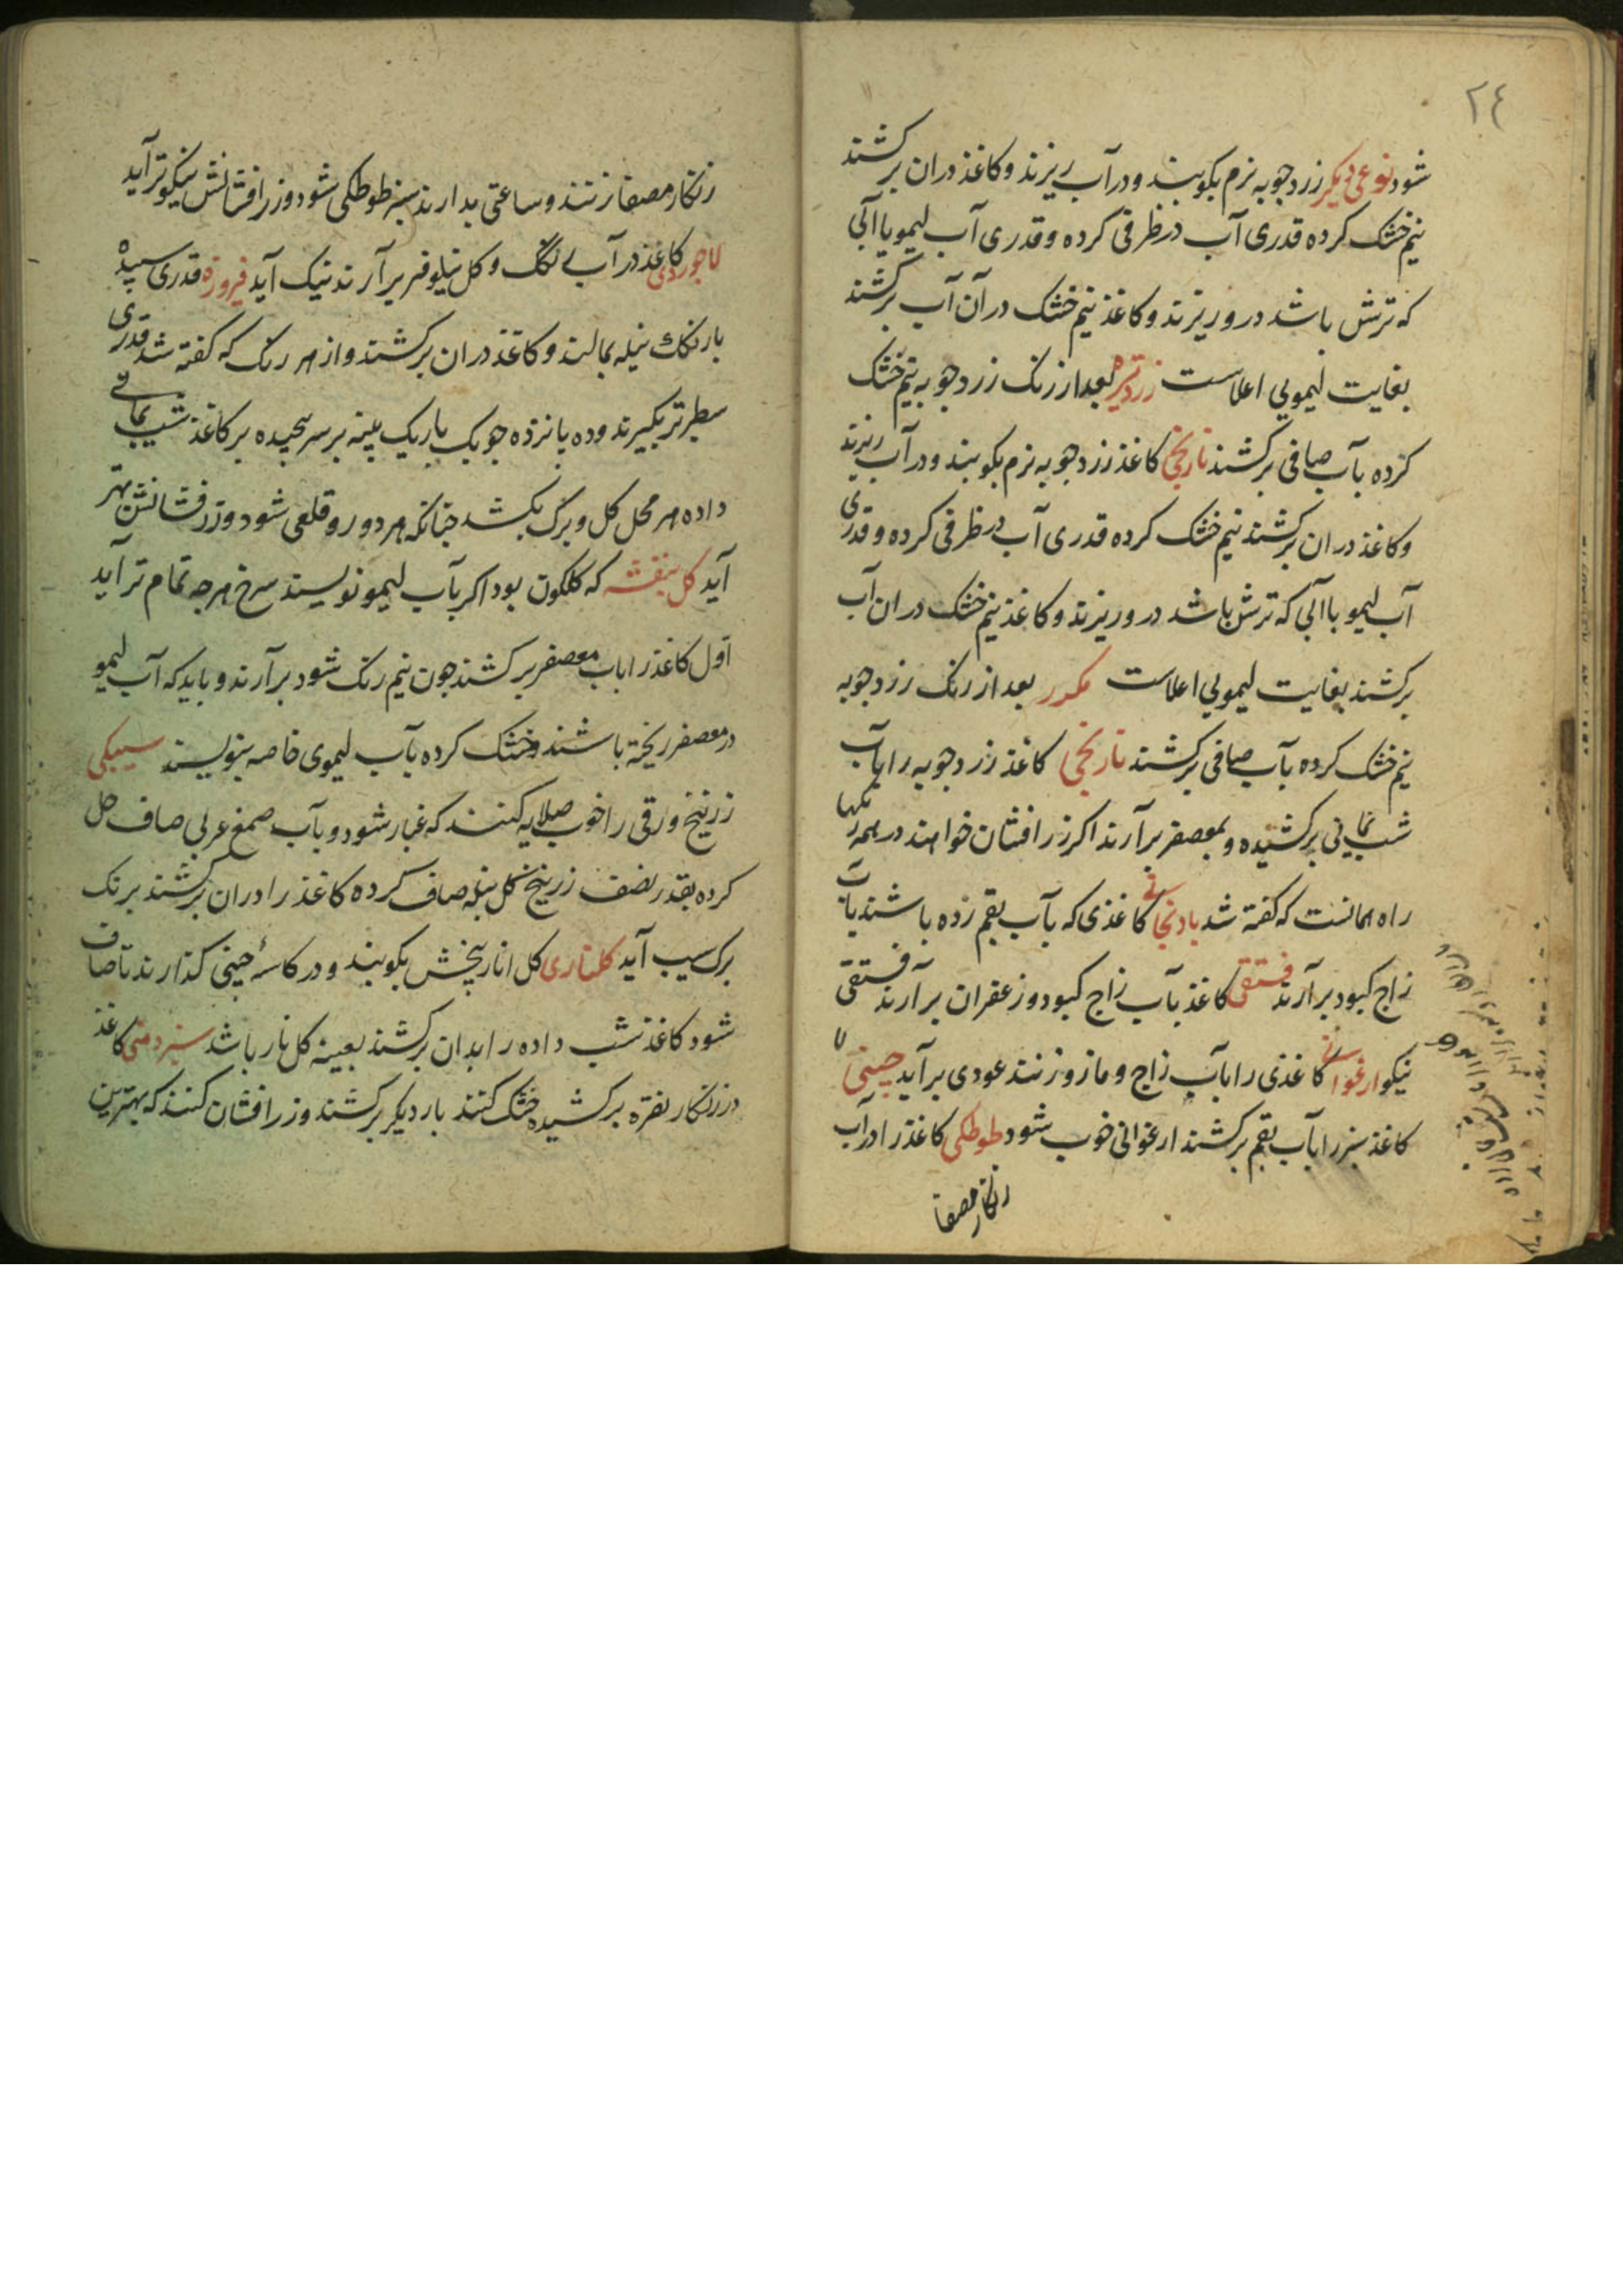 ٢٤
شود نوعی دیکر زردجوبه نرم بکوبند و در آب ریزند و کاغذ دران برکشند
نیم خشک کرده قدری آب در ظرفی کرده و قدری آب لیمو یا آبی
که ترش باشد درو ریزند و کاغذ نیم خشک در آن آب برکشند
بغایت لیمویی اعلاست زرد تیره بعد از رنک زردجوبه نیم خشک
کرده بآب صافی برکشند نارنجی کاغذ زردجوبه نرم بکوبند و در آب ریزند
و کاغذ دران برکشند نیم خشک کرده قدری آب در ظرفی کرده و قدری
آب لیمو یا آبی که ترش باشد درو ریزند و کاغذ نیم خشک دران آب
برکشند بغایت لیمویی اعلاست مکرر بعد از رنک زردجوبه
نیم خشک کرده بآب صافی برکشند نارنجی کاغذ زردجوبه را بآب
شب یمانی برکشیده و بمعصفر برآرند اکر زرافشان خواهند در همه رنکها
راه همانست که کفته شد بادنجانی کاغذی که بآب بقم زده باشند بآب
زاج کبود برآرند فستقی کاغذ بآب زاج کبود و زعفران برآرند فستقی
نیکو ارغوانی کاغذی را بآب زاج و مازو زنند عودی برآید جینی
کاغذ سبز را بآب بقم برکشند ارغوانی خوب شود طوطکی کاغذ را در آب
زنکار مصفا
زنکار مصفا زنند و ساعتی بدارند سبز طوطکی شود و زرافشانش نیکوتر آید
لاجوردی کاغذ در آب لک و کل نیلوفر برآرند نیک آید فیروزه قدری سپیده
با رنک نیله بمالند و کاغذ دران برکشند و از هر رنک که کفته شد قدری
سطبرتر بکیرند و ده پانزده جوبک باریک پنبه بر سر پیجیده بر کاغذ شب یمانی
داده هر محل کل و برک بکشد جنانکه هر دو رو قلعی شود و زرفشانش بهتر
آید کل بنفشه که کلکون بود اکر بآب لیمو نویسند سرخ هرجه تمام تر آید
اول کاغذ را بآب معصفر برکشند جون نیم رنک شود برآرند و باید که آب لیمو
در معصفر ریخته باشند و خشک کرده بآب لیموی خاصه بنویسند سیبکی
زرنیخ ورقی را خوب صلایه کنند که غبار شود و بآب صمغ عربی صاف حل
کرده بقدر نصف زرنیخ کل نیله صاف کرده کاغذ را دران برکشند برنک
برک سیب آید کلناری کل انار پخش بکوبند و در کاسهٔ جینی کذارند تا صاف
شود کاغذ شب داده را بدان برکشند بعینه کل نار باشد سبز دمنی کاغذ
در زنکار نقره برکشیده خشک کنند بار دیکر برکشند و زرافشان کنند که بهترین